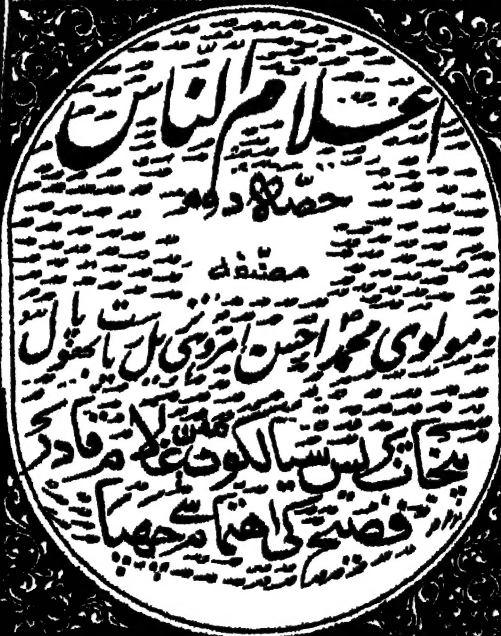 اعلام الناس
حصّہ دوم
مصنّفہ
مولوی محمد احسن امروہی ریاست بھوپال
پنجاب پریس سیالکوٹ میں غلام قادر
فصیح کی اہتمام سے چھپا